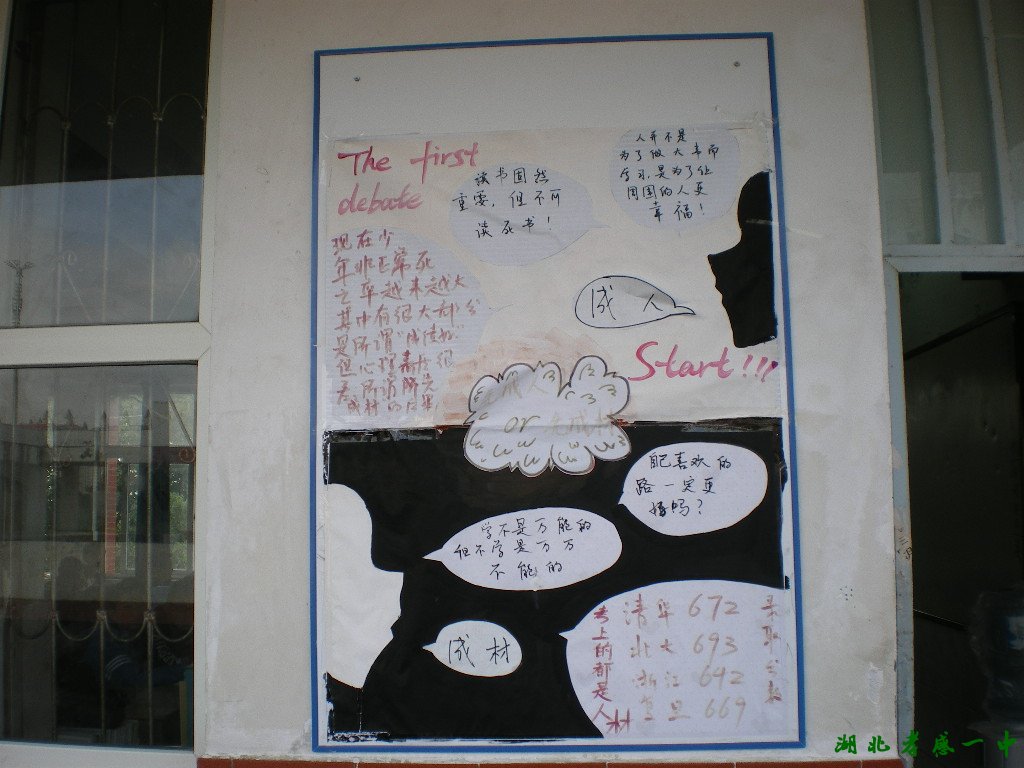 The first
debate
读书固然
重要，但不可
读死书！
人并不是
为了做大事而
学习，是为了让
周围的人更
幸福！
现在少
年非正常死
亡率越来越大
其中有很大部分
是所谓"成绩好"
但心理素质很
成人
Start!!!
先成人
or 先成材
自己喜欢的
路一定更
好吗？
学不是万能的
但不学是万万
不能的
成材
考上的都是人材
清华 672
北大 693
浙江 642
复旦 669
录取分数
湖北孝感一中